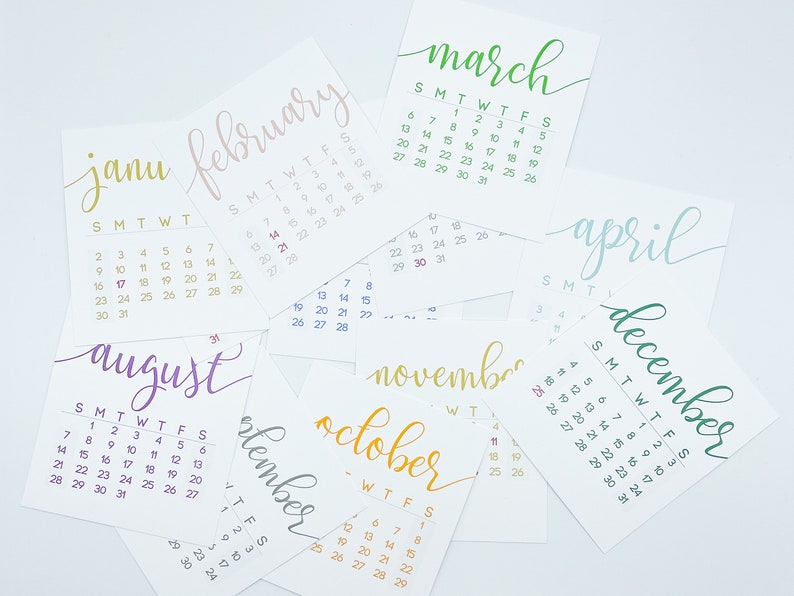 march
S M T W T F S
1 2 3 4 5
6 7 8 9 10 11 12
13 14 15 16 17 18 19
20 21 22 23 24 25 26
27 28 29 30 31
february
S M T W T F S
1 2 3 4 5
6 7 8 9 10 11 12
13 14 15 16 17 18 19
20 21 22 23 24 25 26
27 28
janu
S M T W T
2 3 4 5 6 7
9 10 11 12 13 14
16 17 18 19 20 21 22
23 24 25 26 27 28 29
30 31
22 23 24 25 26 27 28
29 30 31
april
S M T W T F S
3 4
10 11
17 18
24
19 20 21 22
26 27 28
31
august
S M T W T F S
1 2 3 4 5 6
7 8 9 10 11 12 13
14 15 16 17 18 19 20
21 22 23 24 25 26 27
28 29 30 31
november
T F S
3 4 5
10 11 12
17 18 19
24 25 26
december
S M T W T F S
1 2 3
4 5 6 7 8 9 10
11 12 13 14 15 16 17
18 19 20 21 22 23 24
25 26 27 28 29 30 31
ptember
S M T W T F S
1 2 3
7 8 9 10
14 15 16 17
18 19 20 21 22 23 24
25 26 27 28 29 30
october
S M T W T F S
1
4 5 6 7 8
11 12 13 14 15
18 19 20 21 22
25 26 27 28 29